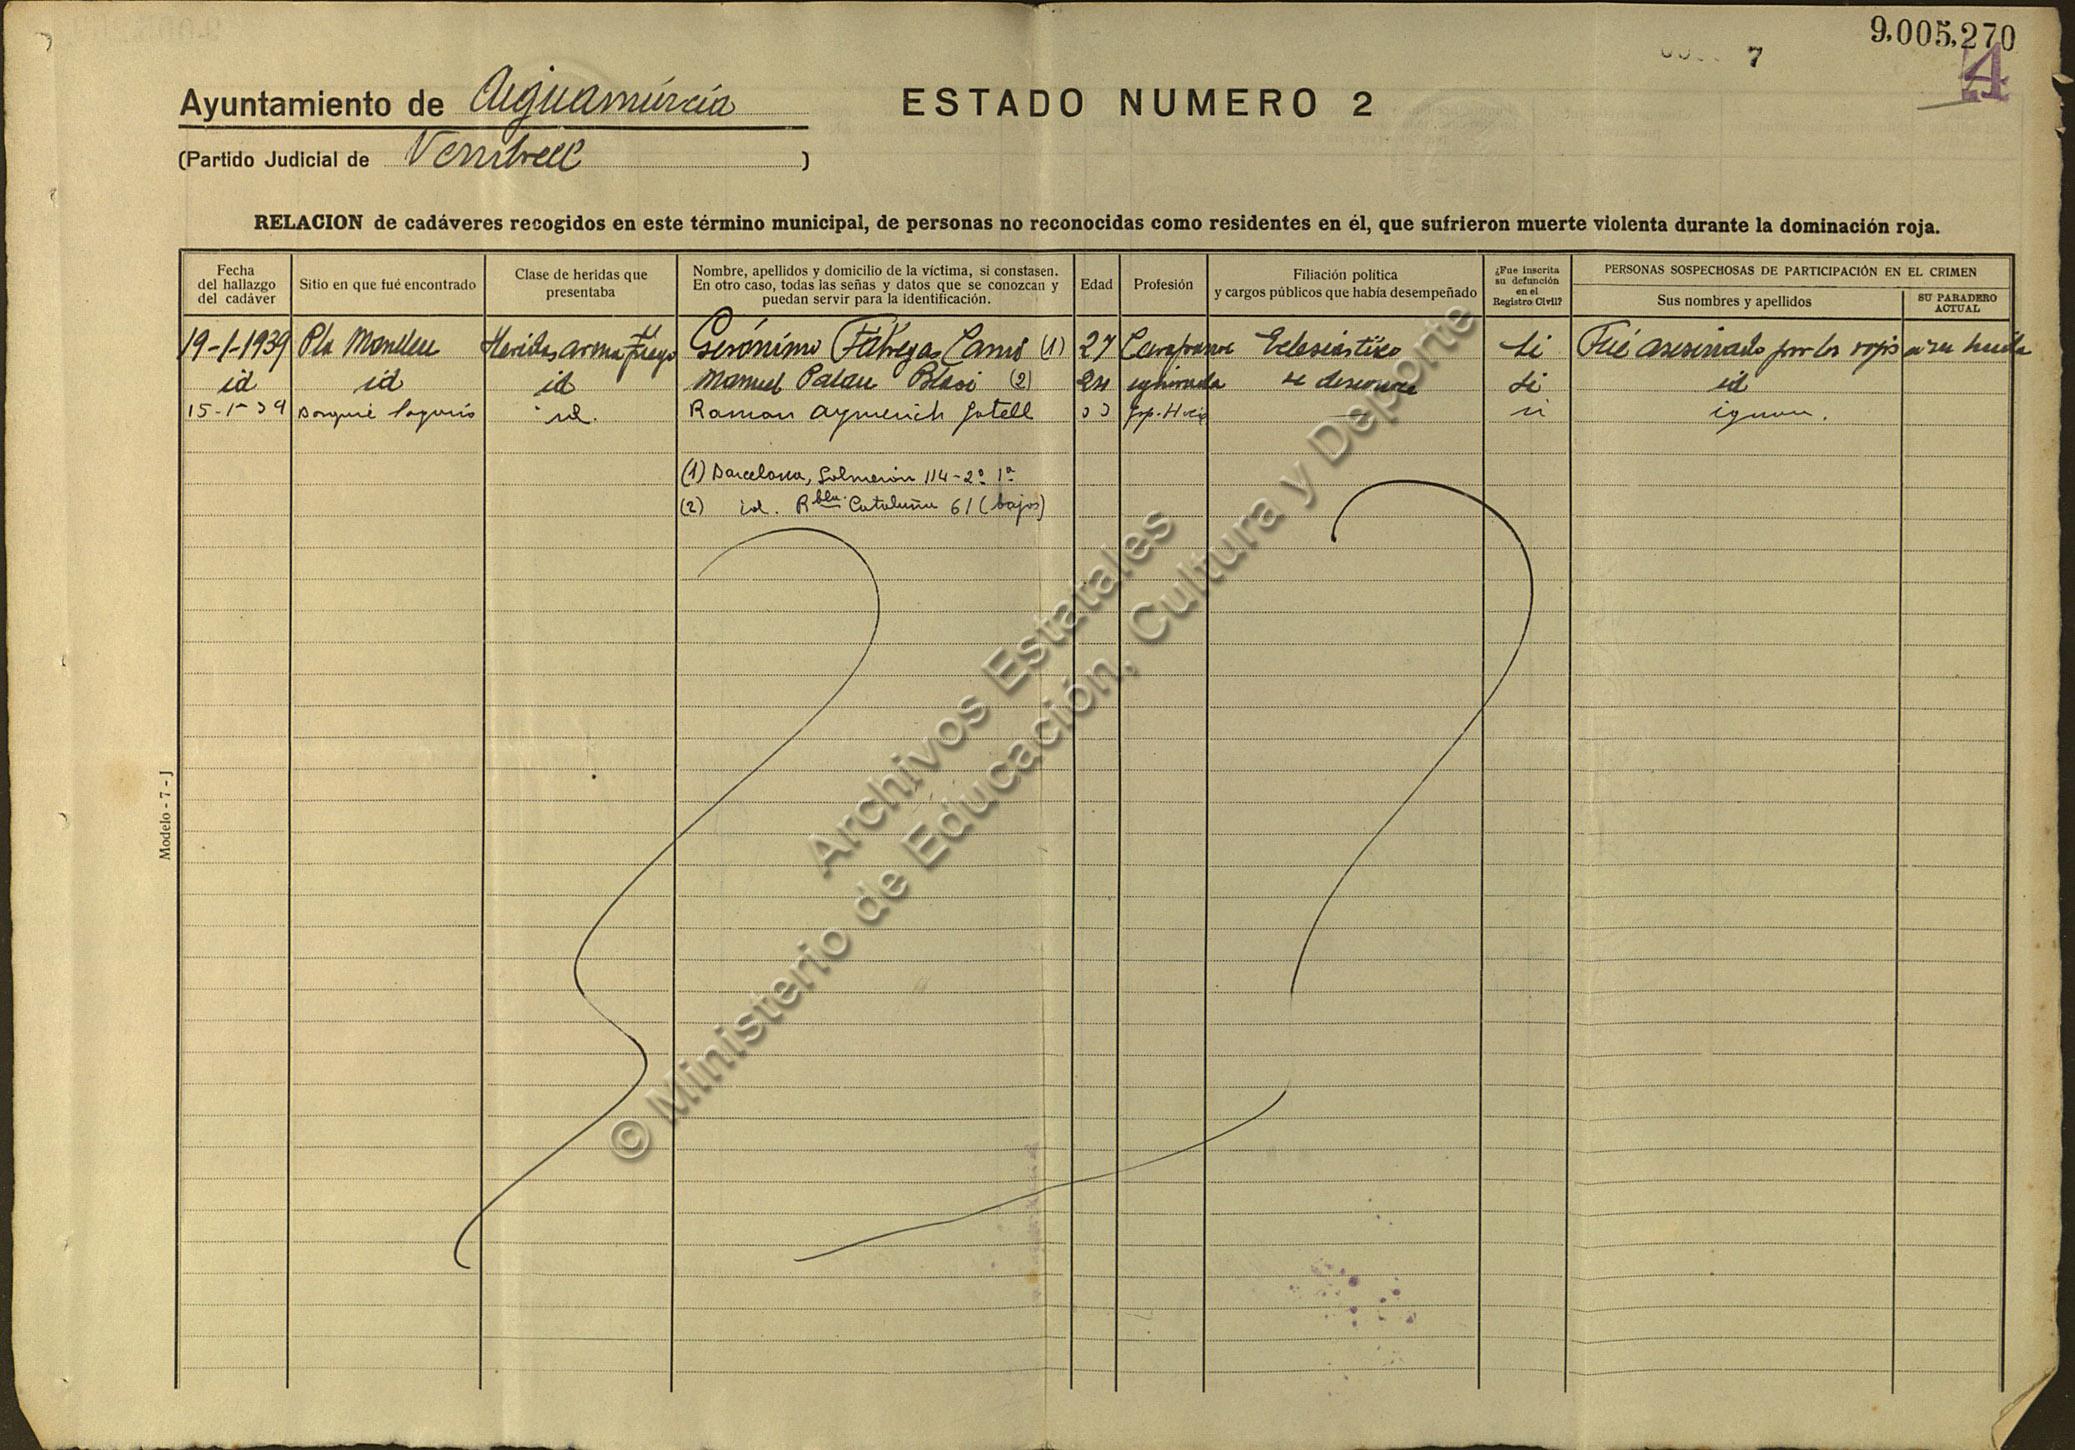 9.005,270
7
4
Ayuntamiento de Aiguamúrcia
ESTADO NUMERO 2
(Partido Judicial de Vendrell)
RELACION de cadáveres recogidos en este término municipal, de personas no reconocidas como residentes en él, que sufrieron muerte violenta durante la dominación roja.
Fecha del hallazgo del cadáver
Sitio en que fué encontrado
Clase de heridas que presentaba
Nombre, apellidos y domicilio de la víctima, si constasen. En otro caso, todas las señas y datos que se conozcan y puedan servir para la identificación.
Edad
Profesión
Filiación política y cargos públicos que había desempeñado
¿Fue inscrita su defunción en el Registro Civil?
PERSONAS SOSPECHOSAS DE PARTICIPACIÓN EN EL CRIMEN
Sus nombres y apellidos
SU PARADERO ACTUAL
19-1-1939 Pla Manlleu Heridas arma Fuego Gerónimo Fábregas Camí (1) 27 Eclesiástico Si Fué asesinado por los rojos a su huida
id id id Manuel Palau Blasi (2) 24 ignorada se desconoce Si id
15-1-39 id. Ramon Aymerich Gatell 33 — si ignora.
(1) Barcelona, Salmerón 114-2º 1ª
(2) id. Rbla. Cataluña 61 (bajos)
Modelo - 7 - J
© Ministerio de Educación, Cultura y Deporte
Archivos Estatales